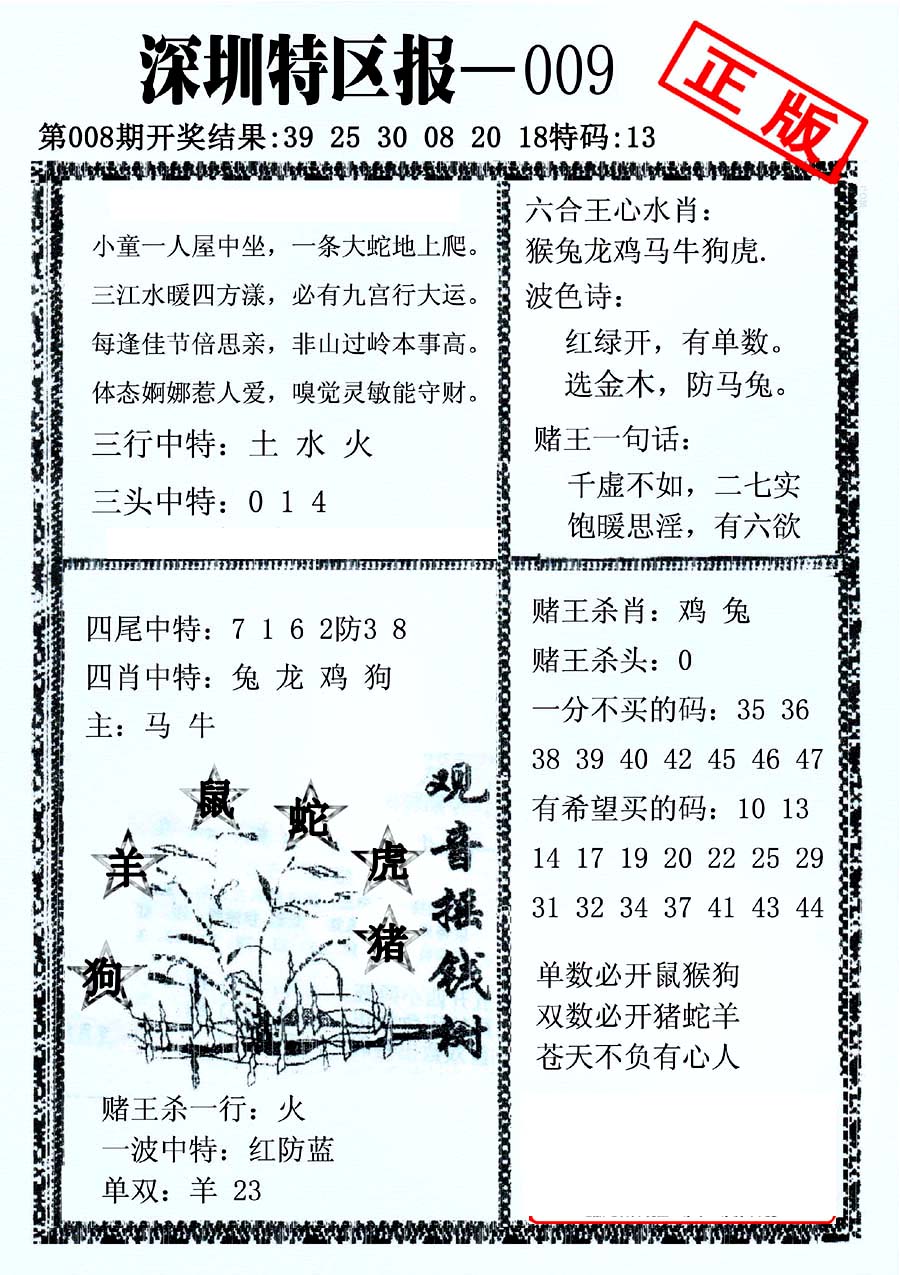 深圳特区报—009
正版
第008期开奖结果:39 25 30 08 20 18特码:13
小童一人屋中坐，一条大蛇地上爬。
三江水暖四方漾，必有九宫行大运。
每逢佳节倍思亲，非山过岭本事高。
体态婀娜惹人爱，嗅觉灵敏能守财。
三行中特：土 水 火
三头中特：0 1 4
六合王心水肖：
猴兔龙鸡马牛狗虎.
波色诗：
红绿开，有单数。
选金木，防马兔。
赌王一句话：
千虚不如，二七实
饱暖思淫，有六欲
四尾中特：7 1 6 2防3 8
四肖中特：兔 龙 鸡 狗
主：马 牛
鼠
蛇
羊
虎
猪
狗
观音摇钱树
赌王杀一行：火
一波中特：红防蓝
单双：羊 23
赌王杀肖：鸡 兔
赌王杀头：0
一分不买的码：35 36
38 39 40 42 45 46 47
有希望买的码：10 13
14 17 19 20 22 25 29
31 32 34 37 41 43 44
单数必开鼠猴狗
双数必开猪蛇羊
苍天不负有心人